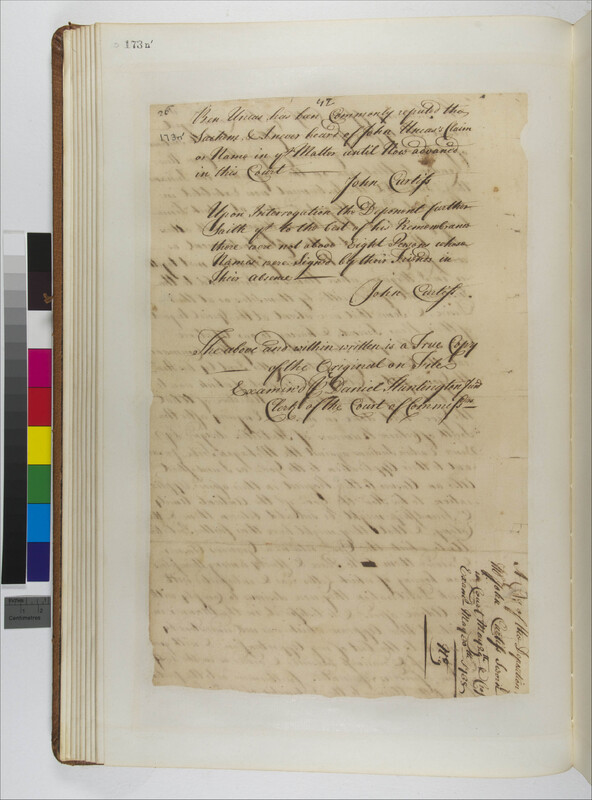 173 n'
42
26
173 n'
Ben Uncas has ben Commonly reputed the
Sachem & I never heard of John Uncas's Claim
or Name in yt Matter until Now advanced
in this Court
John Curtiss
Upon Interrogation the Deponent further
Saith yt to the best of his Remembrance
there were not above Eight Persons whose
Names were Signed by their Friends in
their absence
John Curtiss.
The above and within written is a True Copy
of the Original on File
Examind P Daniel Huntington Jun
Clerk of the Court of Commiss
A Copy of the
Mr John Curtiss Sworn
in Court May
Examd May
No